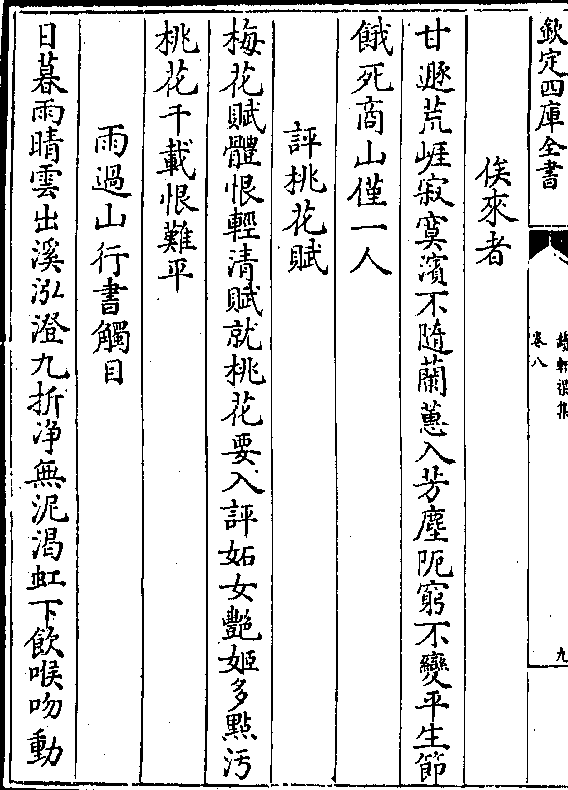 欽定四庫全書
卷八
九
俟來者
甘遯荒崕寂寞濱不隨蘭蕙入芳塵阨窮不變平生節
餓死商山僅一人
評桃花賦
梅花賦體恨輕清賦就桃花要入評妬女艷姬多點汚
桃花千載恨難平
雨過山行書觸目
日暮雨晴雲出溪泓澄九折净無泥渴虹下飲喉吻動